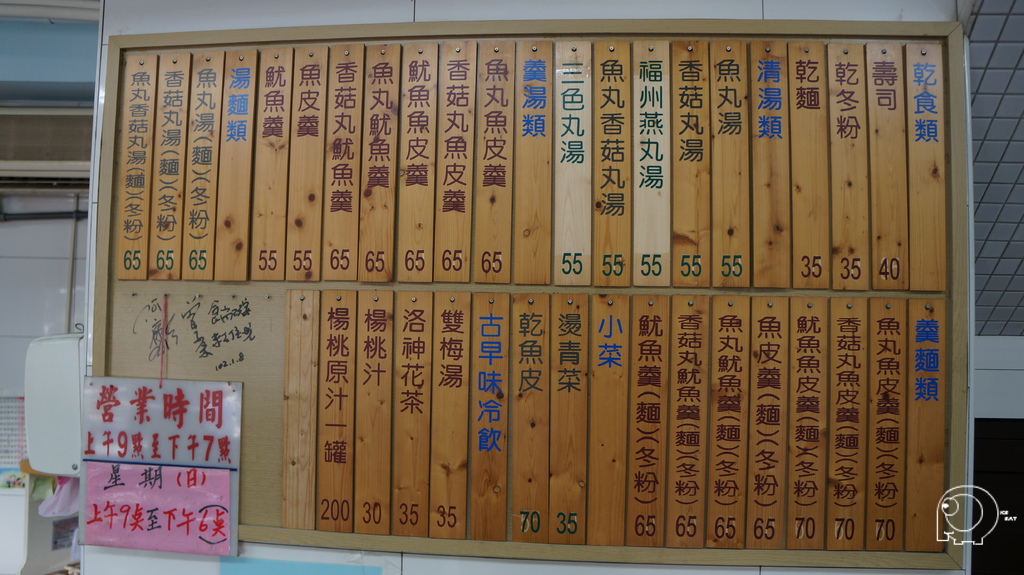 乾食類
壽司 40
乾冬粉 35
乾麵 35
清湯類
魚丸湯 55
香菇丸湯 55
福州燕丸湯 55
魚丸香菇丸湯 55
三色丸湯 55
羹湯類
魚丸魚皮羹 65
香菇丸魚皮羹 65
魷魚魚皮羹 65
魚丸魷魚羹 65
香菇丸魷魚羹 65
魚皮羹 55
魷魚羹 55
湯麵類
魚丸湯(麵)(冬粉) 65
香菇丸湯(麵)(冬粉) 65
魚丸香菇丸湯(麵)(冬粉) 65
羹麵類
魚丸魚皮羹(麵)(冬粉) 70
香菇丸魚皮羹(麵)(冬粉) 70
魷魚魚皮羹(麵)(冬粉) 70
魚皮羹(麵)(冬粉) 65
魚丸魷魚羹(麵)(冬粉) 65
香菇丸魷魚羹(麵)(冬粉) 65
魷魚羹(麵)(冬粉) 65
小菜
燙青菜 35
乾魚皮 70
古早味冷飲
雙梅湯 35
洛神花茶 35
楊桃汁 30
楊桃原汁一罐 200
102.1.8
營業時間
上午9點至下午7點
星期(日)
上午9點至下午(6點)
ICE
EAT